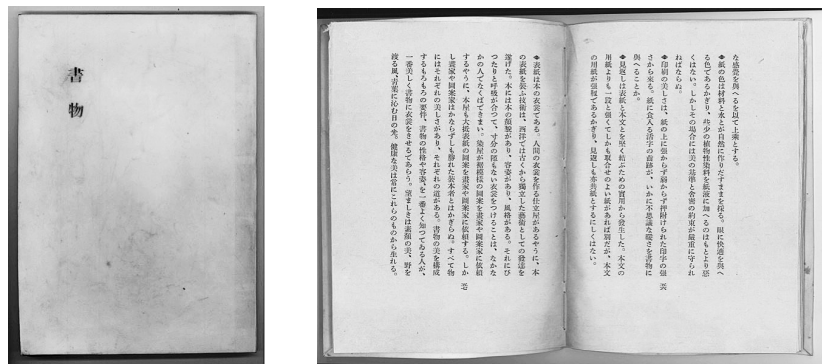 書物
な感覺を與へるを以て上乘とする。
◆紙の色は材料と水とが自然に作りだすままを採る。眼に快適を與へ
る色であるかぎり、些少の植物性染料を紙液に加へるのはもとより惡
くはない。しかしその場合には美の基準と舍密の約束が嚴重に守られ
ねばならぬ。
◆印刷の美しさは、紙の上に强からず弱からず押附けられた印字の强
さから來る。紙に食入る活字の痕跡が、いかに不思議な礎さを書物に
與へることか。
◆見返しは表紙と本文とを堅く結ぶための實用から發生した。本文の
用紙よりも一段と强くてしかも取合せのよい紙があれば別だが、本文
の用紙が强靱であるかぎり、見返しも亦共紙とするにしくはない。
◆表紙は本の衣裳である。人間の衣裳を作る仕立屋があるやうに、本
の表紙を裝ふ技術は、西洋では古くから獨立した藝術としての發達を
遂げた。本には本の顏貌があり、容姿があり、風格がある。それにぴ
つたりと呼吸が合つて、寸分の隙もない衣裳をつけることは、なかな
かの人でなくばできまい。染屋が裾模樣の圖案を畫家や圖案家に依賴
するやうに、本屋も大抵表紙の圖案を畫家や圖案家に依賴する。しか
し畫家や圖案家はかならずしも勝れた裝本者とはかぎらぬ。すべて物
にはそれぞれの美しさがあり、それぞれの道がある。書物の美を構成
するもろもろの要件、書物の性格や容姿を一番よく知つてゐる人が、
一番美しく書物に衣裳をきせるであらう。望ましきは素顏の美、野を
渡る風、靑葉に沁む日の光。健康な美は常にこれらのものから生れる。